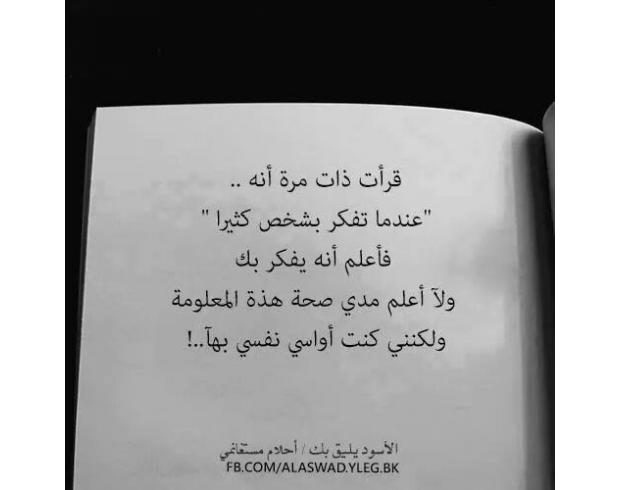 قرأت ذات مرة أنه ..
"عندما تفكر بشخص كثيرا "
فأعلم أنه يفكر بك
ولآ أعلم مدي صحة هذة المعلومة
ولكنني كنت أواسي نفسي بهآ..!
الأسود يليق بك / أحلام مستغانمي
FB.COM/ALASWAD.YLEG.BK